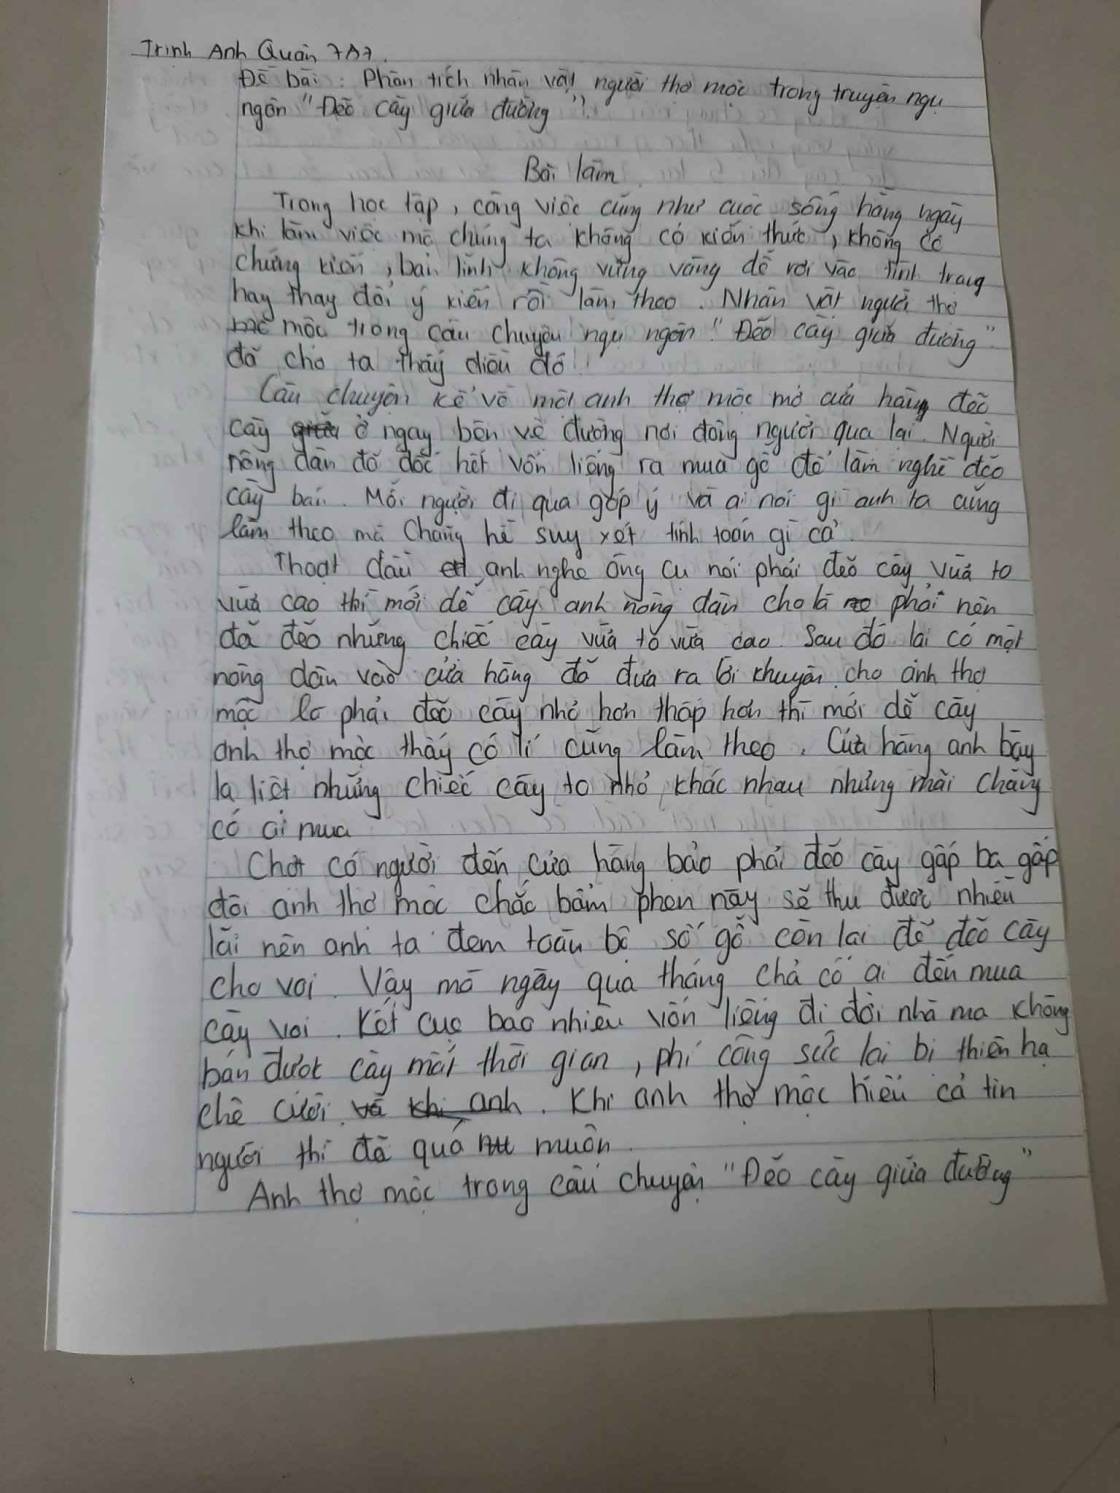 Trinh Anh Quân 7A7.
Đề bài: Phân tích nhân vật người thợ mộc trong truyện ngụ
ngôn "Đẽo cày giữa đường".
Bài làm
Trong học tập, công việc cũng như cuộc sống hằng ngày
khi làm việc mà chúng ta không có kiến thức, không có
chứng kiến, bản lĩnh không vững vàng dễ rơi vào tình trạng
hay thay đổi ý kiến rồi làm theo. Nhân vật người thợ
mộc trong câu chuyện ngụ ngôn "Đẽo cày giữa đường"
đã cho ta thấy điều đó!
Câu chuyện kể về một anh thợ mộc mở cửa hàng đẽo
cày ở ngay bên vệ đường nơi đông người qua lại. Người
nông dân đó dốc hết vốn liếng ra mua gỗ để làm nghề đẽo
cày bán. Mỗi người đi qua góp ý và ai nói gì anh ta cũng
làm theo mà chẳng hề suy xét tính toán gì cả.
Thoạt đầu anh nghe ông cụ nói phải đẽo cày vừa to
vừa cao thì mới dễ cày anh nông dân cho là phải nên
đã đẽo những chiếc cày vừa to vừa cao. Sau đó lại có một
nông dân vào cửa hàng đã đưa ra lời khuyên cho anh thợ
mộc là phải đẽo cày nhỏ hơn thấp hơn thì mới dễ cày
anh thợ mộc thấy có lí cũng làm theo. Cửa hàng anh bày
la liệt những chiếc cày to nhỏ khác nhau nhưng mãi chẳng
có ai mua
Chợt có người đến cửa hàng bảo phải đẽo cày gấp ba gấp
đôi anh thợ mộc chắc bẩm phen này sẽ thu được nhiều
lãi nên anh ta đem toàn bộ số gỗ còn lại để đẽo cày
cho voi. Vậy mà ngày qua tháng chả có ai đến mua
cày voi. Kết cục bao nhiêu vốn liếng đi đời nhà ma không
bán được cày mất thời gian, phí công sức lại bị thiên hạ
chê cười và khi anh. Khi anh thợ mộc hiểu cả tin
người thì đã quá muộn.
Anh thợ mộc trong câu chuyện "Đẽo cày giữa đường"